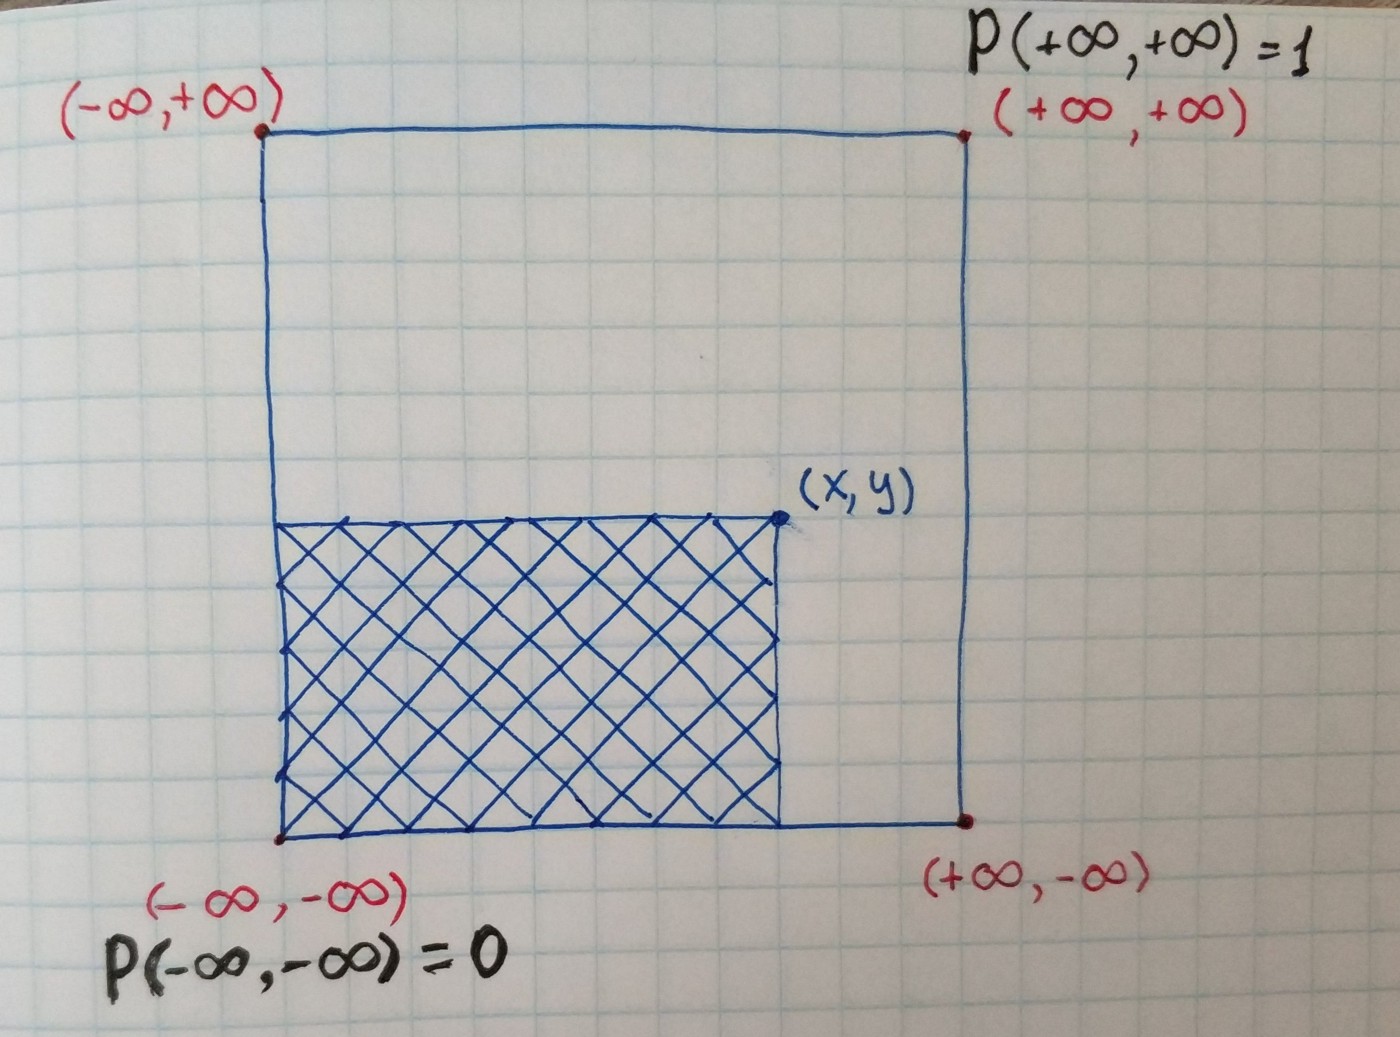 P(+∞,+∞)=1
(-∞,+∞)
(+∞,+∞)
(x,y)
(+∞,-∞)
(-∞,-∞)
P(-∞,-∞)=0